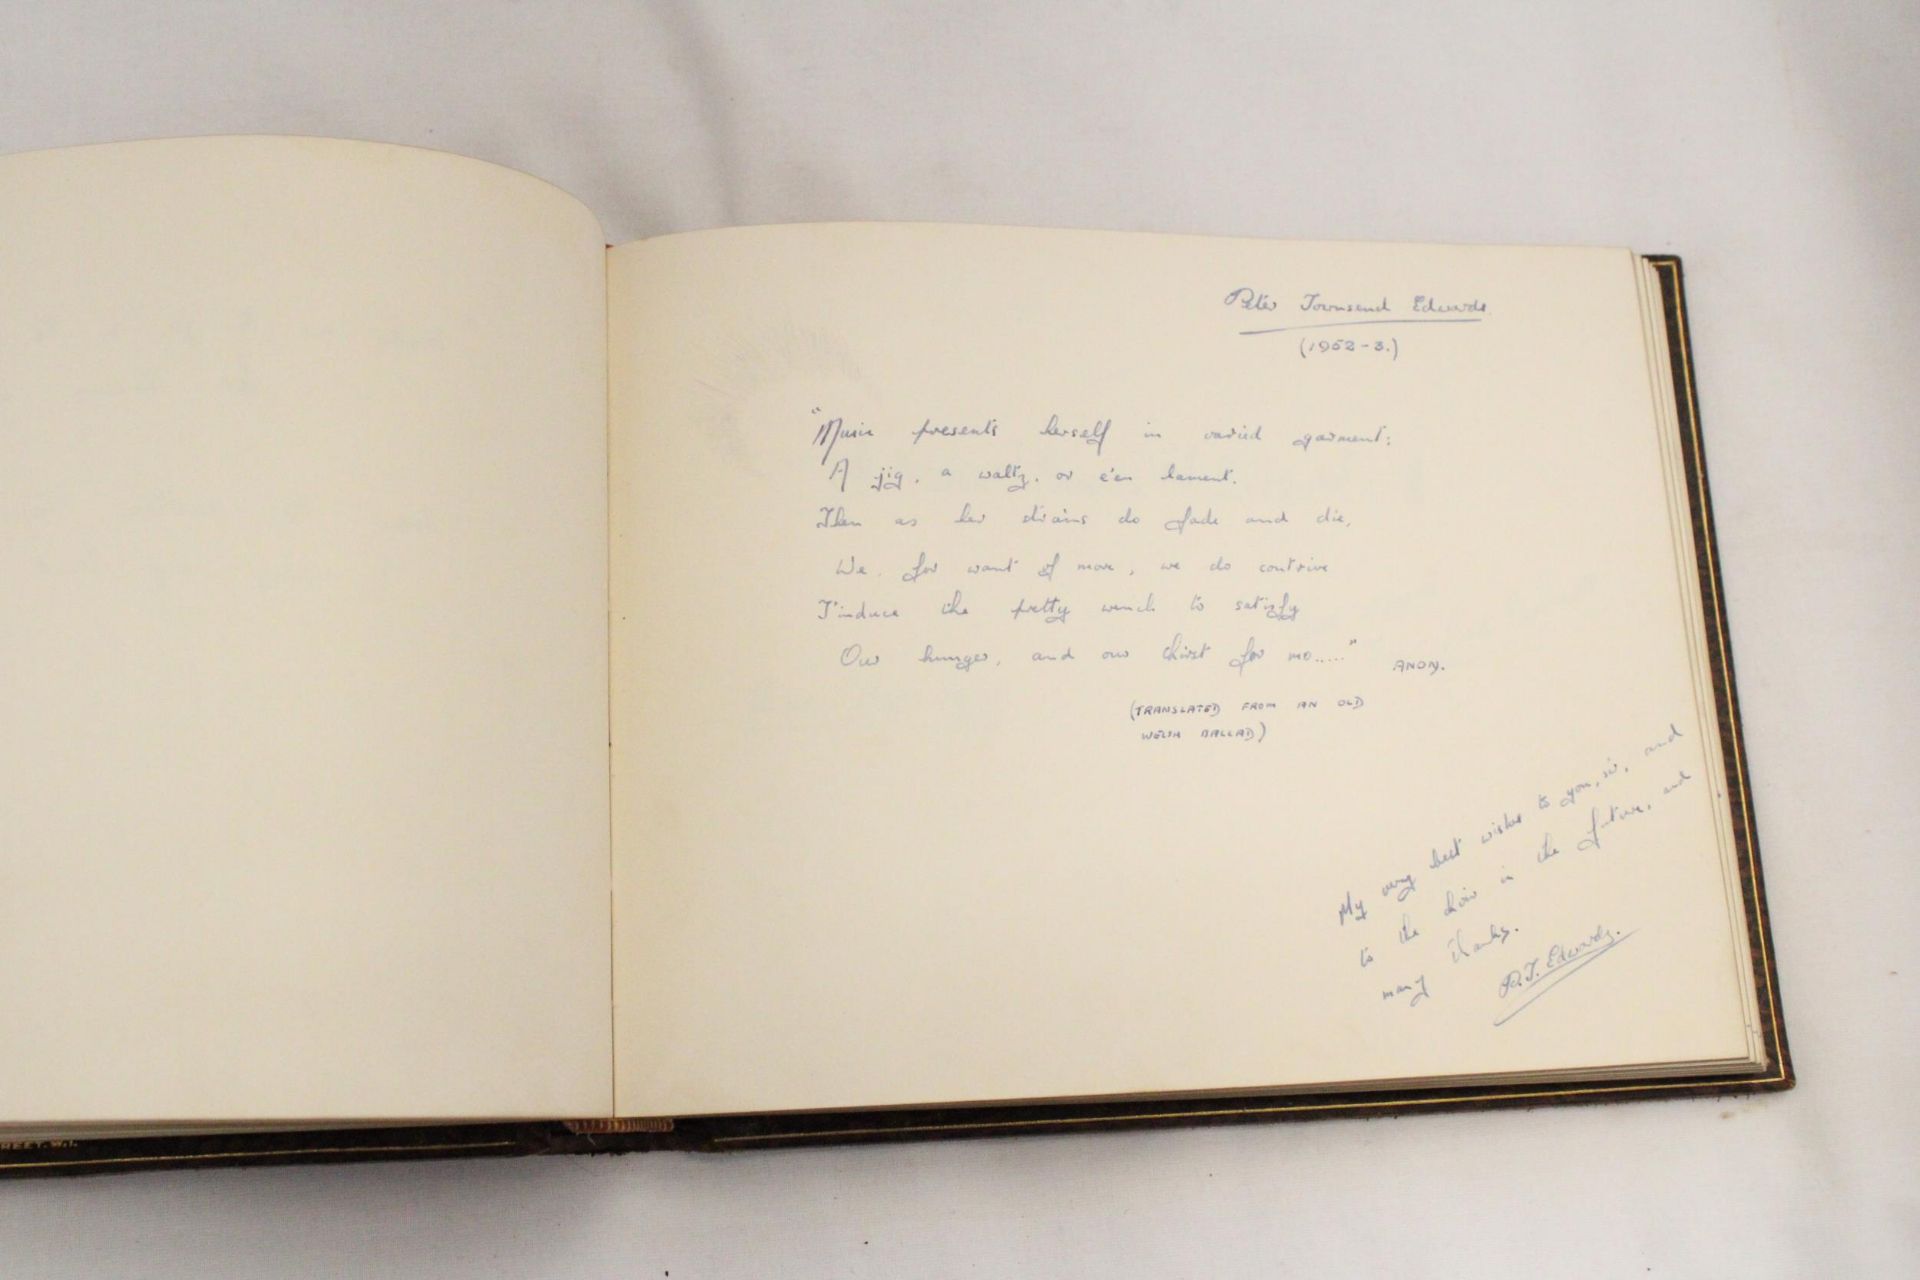 Peter Townsend Edwards.
(1952-3.)
"Music presents herself in varied garment:
A jig, a waltz, or e'en lament.
Then as her strains do fade and die,
We, for want of more, we do contrive
T'induce the pretty wench to satisfy
Our hunger, and our thirst for mo....."
ANON.
(TRANSLATED FROM AN OLD
WELSH BALLAD)
My very best wishes to you, sir, and
to the choir in the future, and
many thanks.
P.T. Edwards.
REET. W.1.